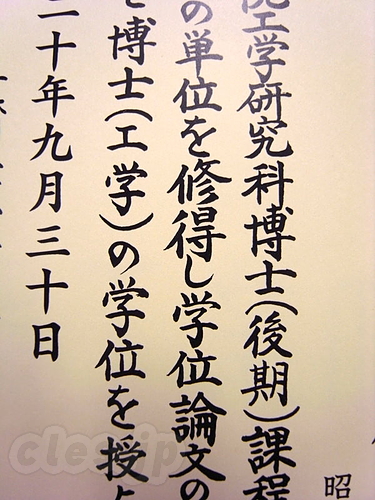 院工学研究科博士(後期)課程
の単位を修得し学位論文の
博士(工学)の学位を授
二十年九月三十日
昭
clesjp